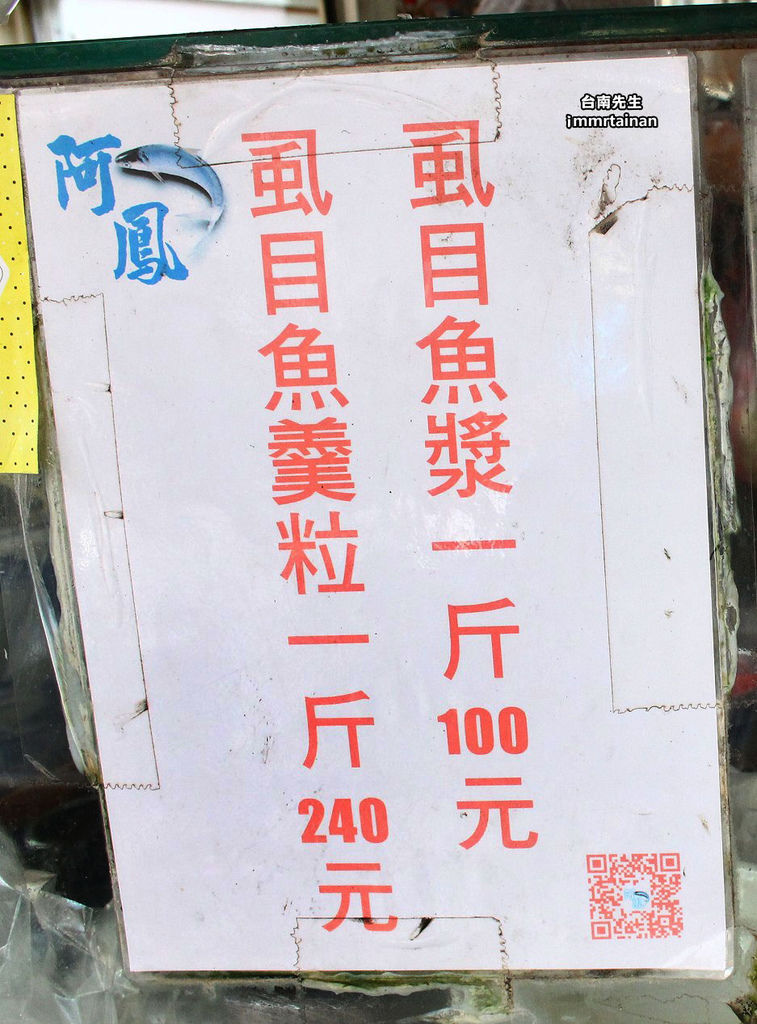 台南先生
immrtainan
阿鳳
虱目魚漿一斤100元
虱目魚羹粒一斤240元